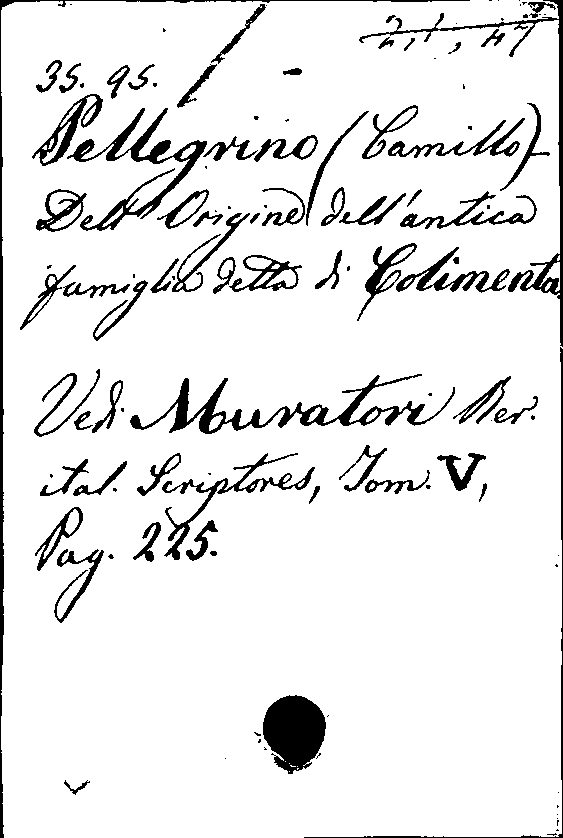 35. 95.
Pellegrino (Camillo)
Dell'Origine dell'antica
famiglia detta di Colimenta.
Vedi Muratori Rer.
ital. Scriptores, Tom. V,
Pag. 225.